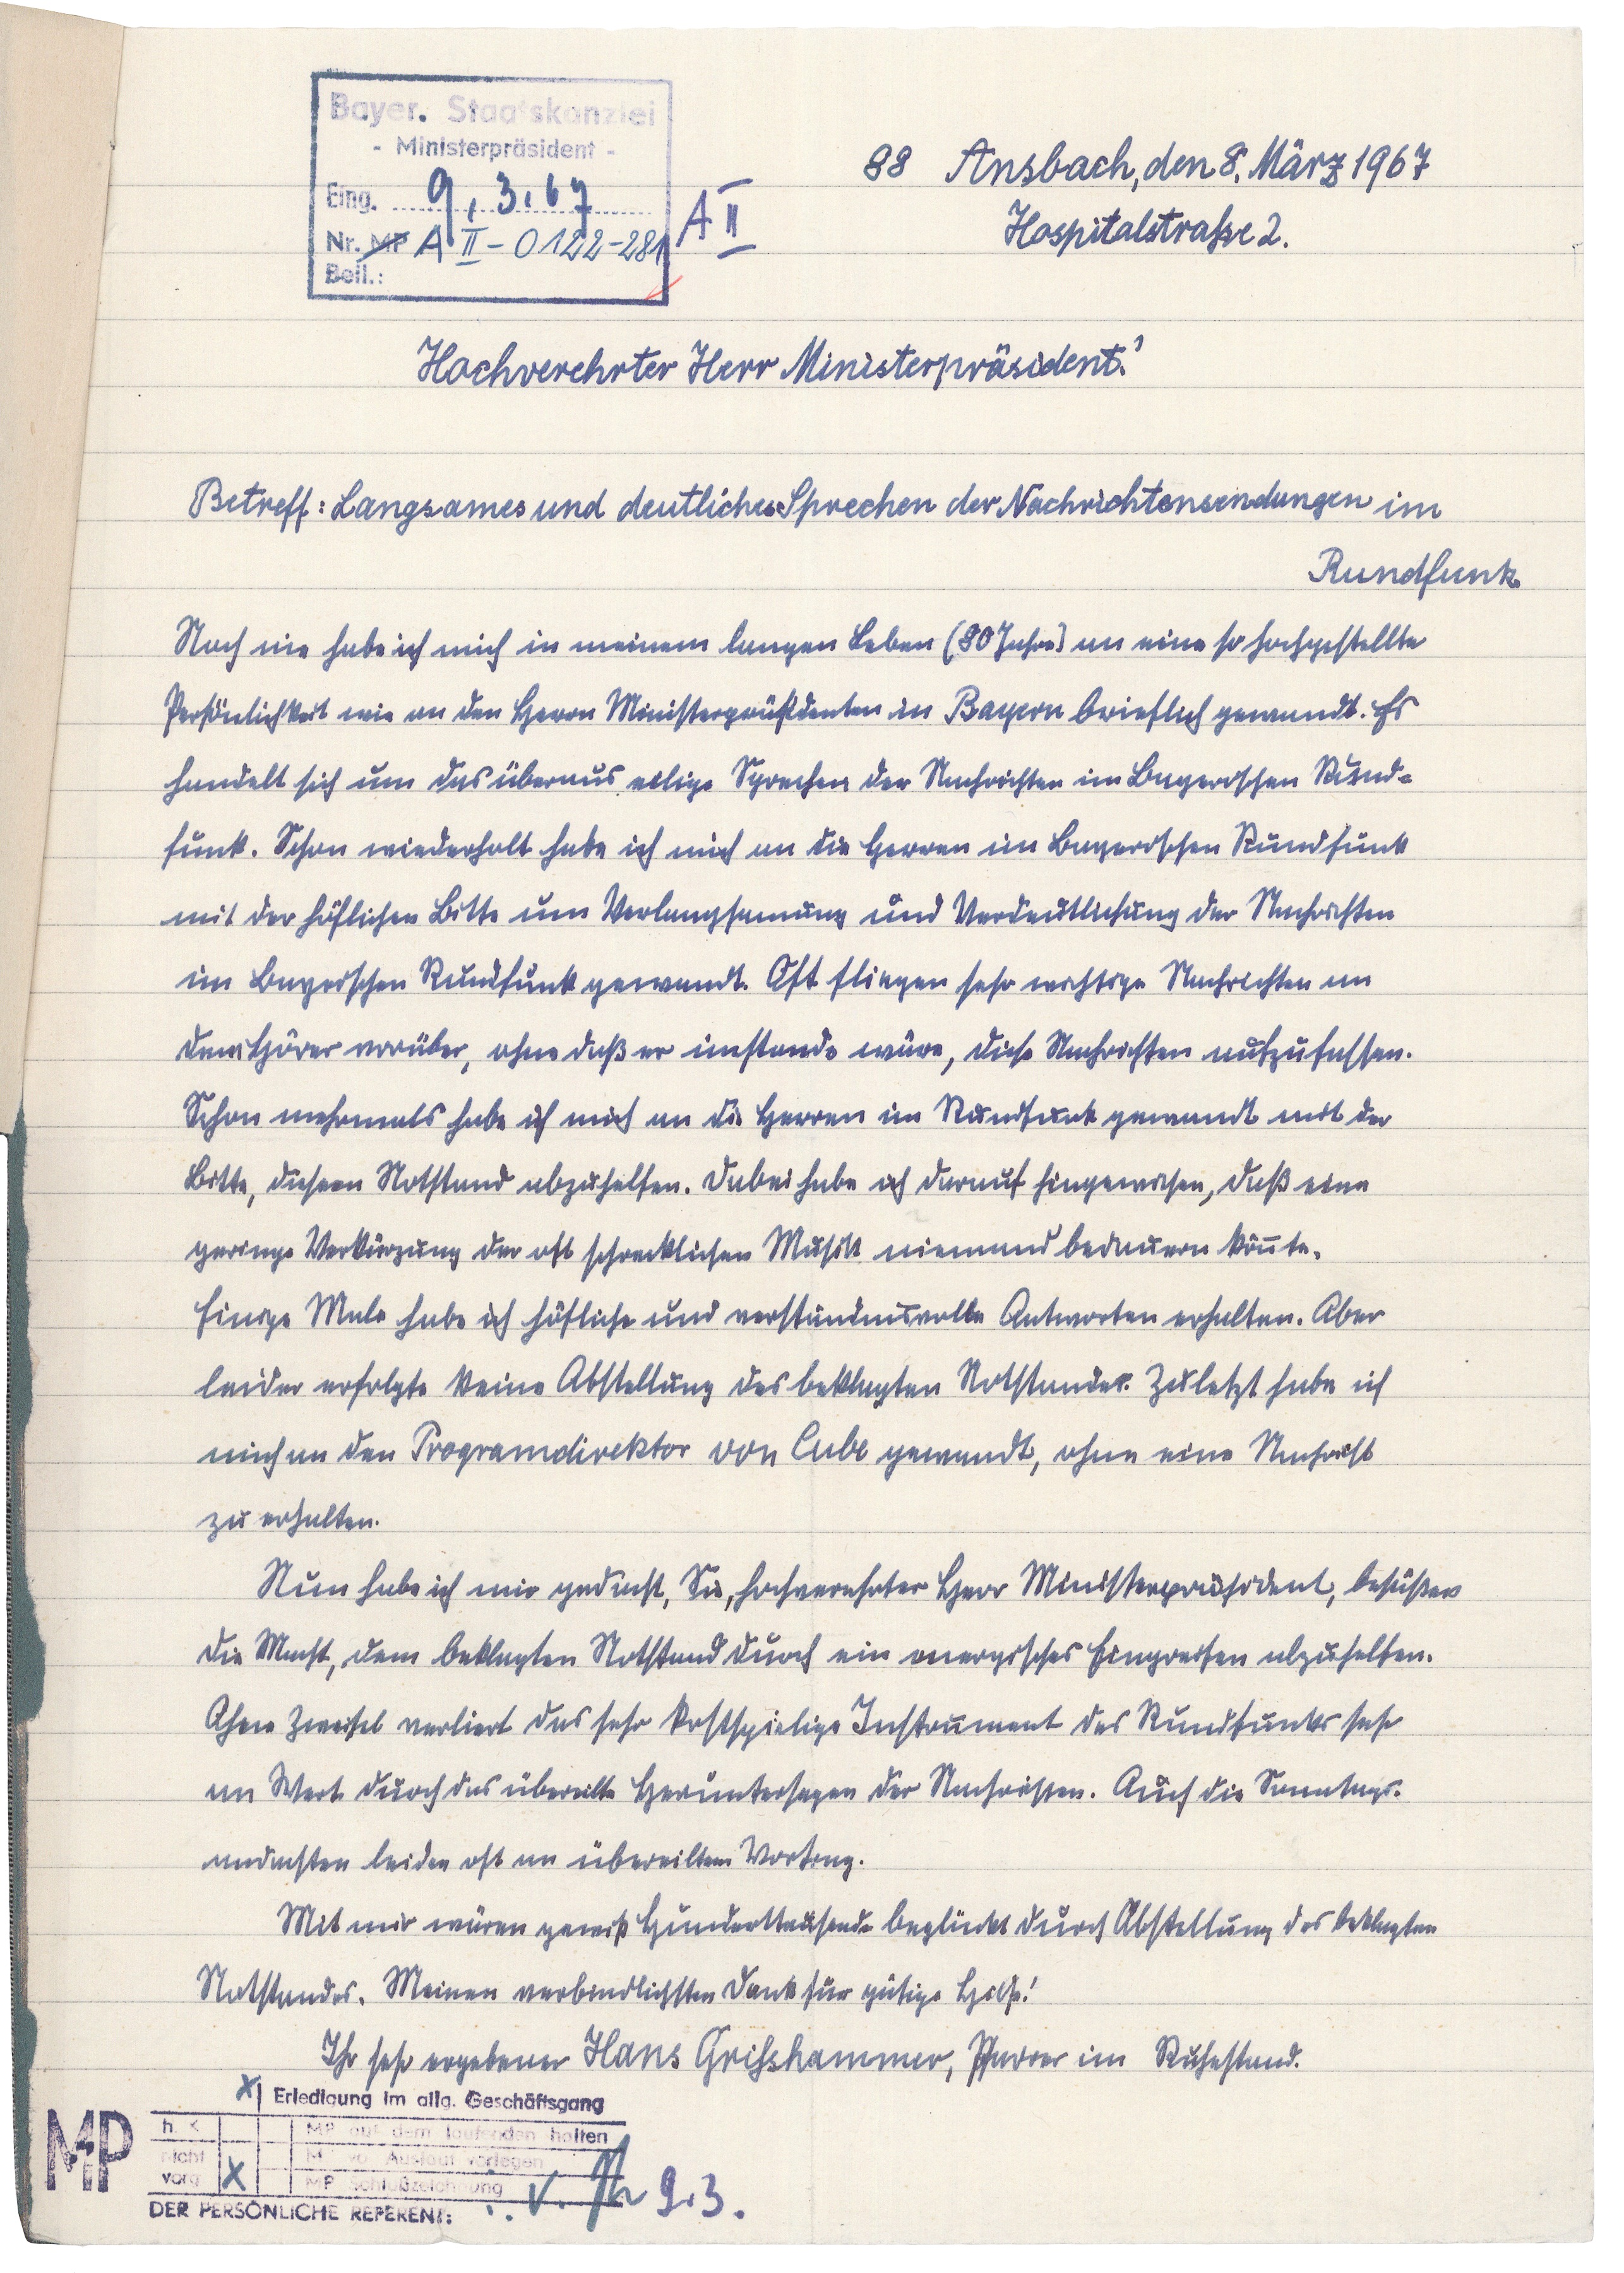 Bayer. Staatskanzlei
- Ministerpräsident -
Eing. 9. 3. 67
Nr. MP A II - 0122-281
Beil.:
A II
88 Ansbach, den 8. März 1967
Hospitalstraße 2.
Hochverehrter Herr Ministerpräsident!
Betreff: Langsames und deutliches Sprechen der Nachrichtensendungen im
Rundfunk
Noch nie habe ich mich in meinem langen Leben (80 Jahre) an eine so hochgestellte
Persönlichkeit wie an den Herrn Ministerpräsidenten in Bayern brieflich gewandt. Es
handelt sich um das überaus eilige Sprechen der Nachrichten im Bayerischen Rund-
funk. Schon wiederholt habe ich mich an die Herren im Bayerischen Rundfunk
mit der höflichen Bitte um Verlangsamung und Verdeutlichung der Nachrichten
im Bayrischen Rundfunk gewandt. Oft fliegen sehr wichtige Nachrichten an
dem Hörer vorüber, ohne daß er imstande wäre, diese Nachrichten aufzufassen.
Schon mehrmals habe ich mich an die Herren im Rundfunk gewandt mit der
Bitte, diesem Notstand abzuhelfen. Dabei habe ich darauf hingewiesen, daß eine
geringe Verkürzung der oft schrecklichen Musik niemand bedauern könnte.
Einige Male habe ich höfliche und verständnisvolle Antworten erhalten. Aber
leider erfolgte keine Abstellung des beklagten Notstandes. Zuletzt habe ich
mich an den Programdirektor von Cube gewandt, ohne eine Nachricht
zu erhalten.
Nun habe ich mir gedacht, Sie, hochverehrter Herr Ministerpräsident, besäßen
die Macht, dem beklagten Notstand durch ein energisches Eingreifen abzuhelfen.
Ohne Zweifel verliert das sehr kostspielige Instrument des Rundfunks sehr
an Wert durch das übereilte Heruntersagen der Nachrichten. Auch die Sonntags-
andachten leiden oft an übereiltem Vortrag.
Mit mir wären gewiß Hunderttausende beglückt durch Abstellung des beklagten
Notstandes. Meinen verbindlichsten Dank für gütige Hilfe!
Ihr sehr ergebener Hans Grißhammer, Pfarrer im Ruhestand.
x Erledigung im allg. Geschäftsgang
MP
h. K MP auf dem laufenden halten
nicht M vor Auslauf vorlegen
vorg x MP Schlußzeichnung
DER PERSÖNLICHE REFERENT: i. V. 9.3.